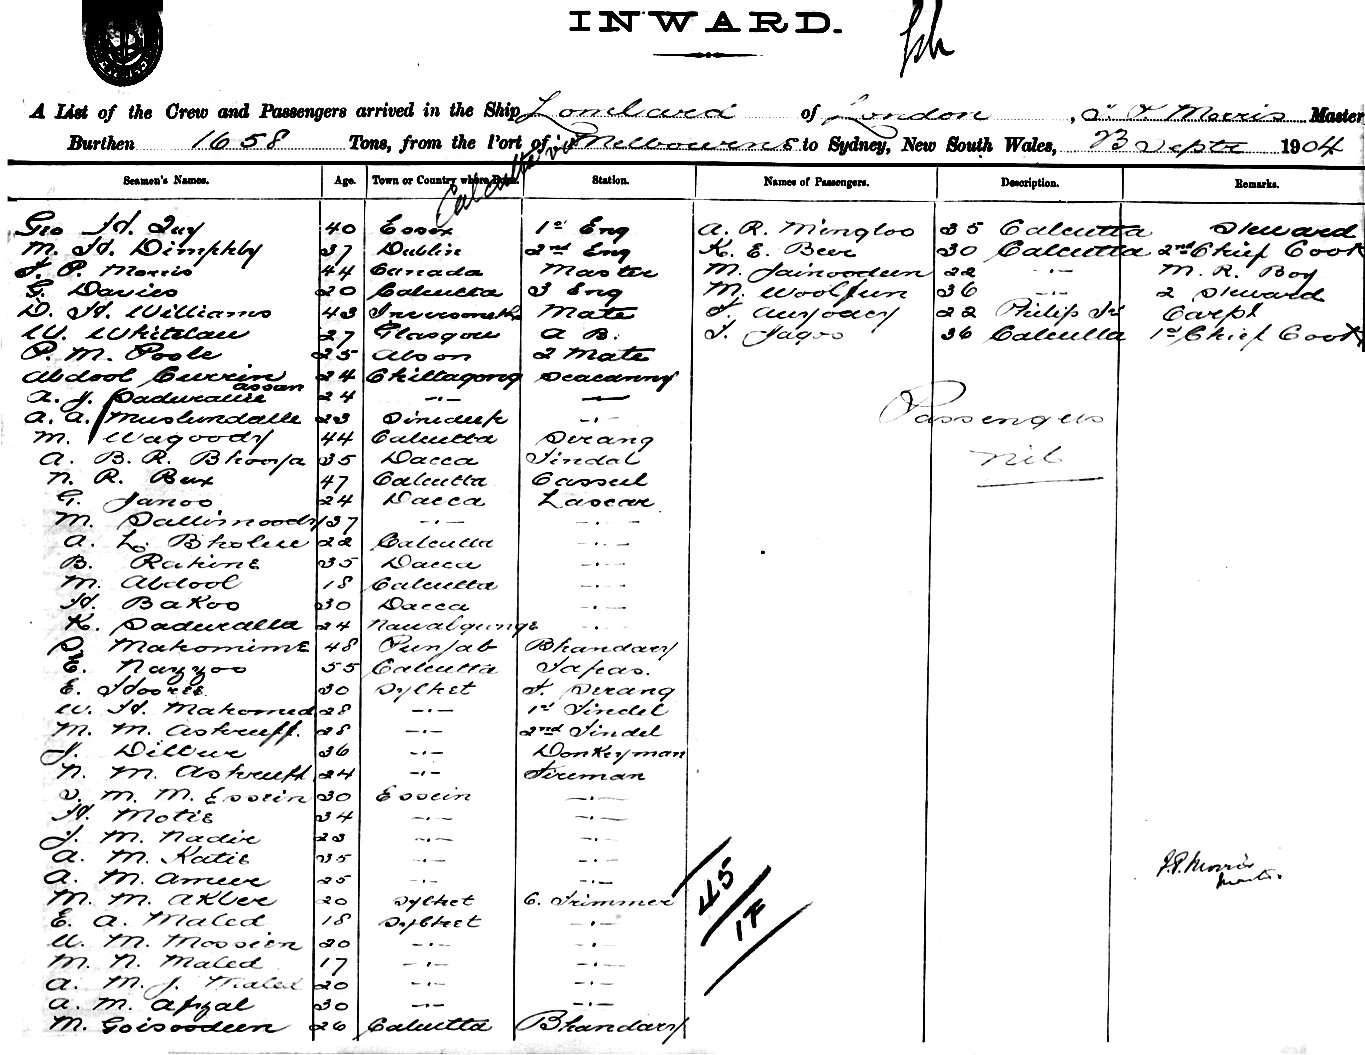 INWARD.
A List of the Crew and Passengers arrived in the Ship Lombard of London, J. P. Morris Master
Burthen 1658 Tons, from the Port of Calcutta via Melbourne to Sydney, New South Wales, 23 Septr 1904
Seamen's Names. Age. Town or Country where Born. Station. Names of Passengers. Description. Remarks.
Geo H. Guy 40 Essex 1st Eng A. R. Mingloo 35 Calcutta Steward
M. H. 37 Dublin 2nd Eng K. E. Bux 30 Calcutta 2nd Chief Cook
J. P. Morris 44 Canada Master M. Jainoodeen 22 -.- M. R. Boy
G. Davies 20 Calcutta 3 Eng M. 36 -.- 2 Steward
D. H. Williams 43 Mate 22 Carpt
W. Whitelaw 27 Glasgow A B. 36 Calcutta 1st Chief Cook
P. M. Poole 25 2 Mate
Abdool 24 Chittagong Seacunny
A. J. assan 24 -.- -
A. A. 23 -.-
M. 44 Calcutta Serang
A. B. R. 35 Dacca Tindal
N. R. Bux 47 Calcutta Cassub
G. Janoo 24 Dacca Lascar
M. 37 -.- -.-
A. L. 22 Calcutta -.-
B. Rahime 35 Dacca -.-
M. Abdool 18 Calcutta -.-
H. Bakoo 30 Dacca -.-
K. Saduralla 24 Nawabgunge -.-
Mahomime 48 Punjab Bhandary
E. Nazzoo 55 Calcutta Topas.
E. 30 Sylhet F. Serang
W. H. Mahomed 28 -.- 1st Tindel
M. M. Ashruff. 28 -.- 2nd Tindel
J. Dilbur 36 -.- Donkeyman
N. M. Ashruff 24 -.- Fireman
M. M. Essein 30 Essein -.-
H. Motie 34 -.- -.-
J. M. Nadir 23 -.- -.-
A. M. Katie 35 -.- -.-
A. M. Ameer 25 -.- -.-
M. M. Akber 20 Sylhet C. Trimmer
E. A. Maled 18 Sylhet -.-
U. M. Mossien 20 -.- -.-
M. N. Maled 17 -.- -.-
A. M. J. Maled 20 -.- -.-
A. M. Afzal 30 -.- -.-
M. Goisoodeen 26 Calcutta Bhandary
Passengers
nil
45
17
J. P. Morris
Master